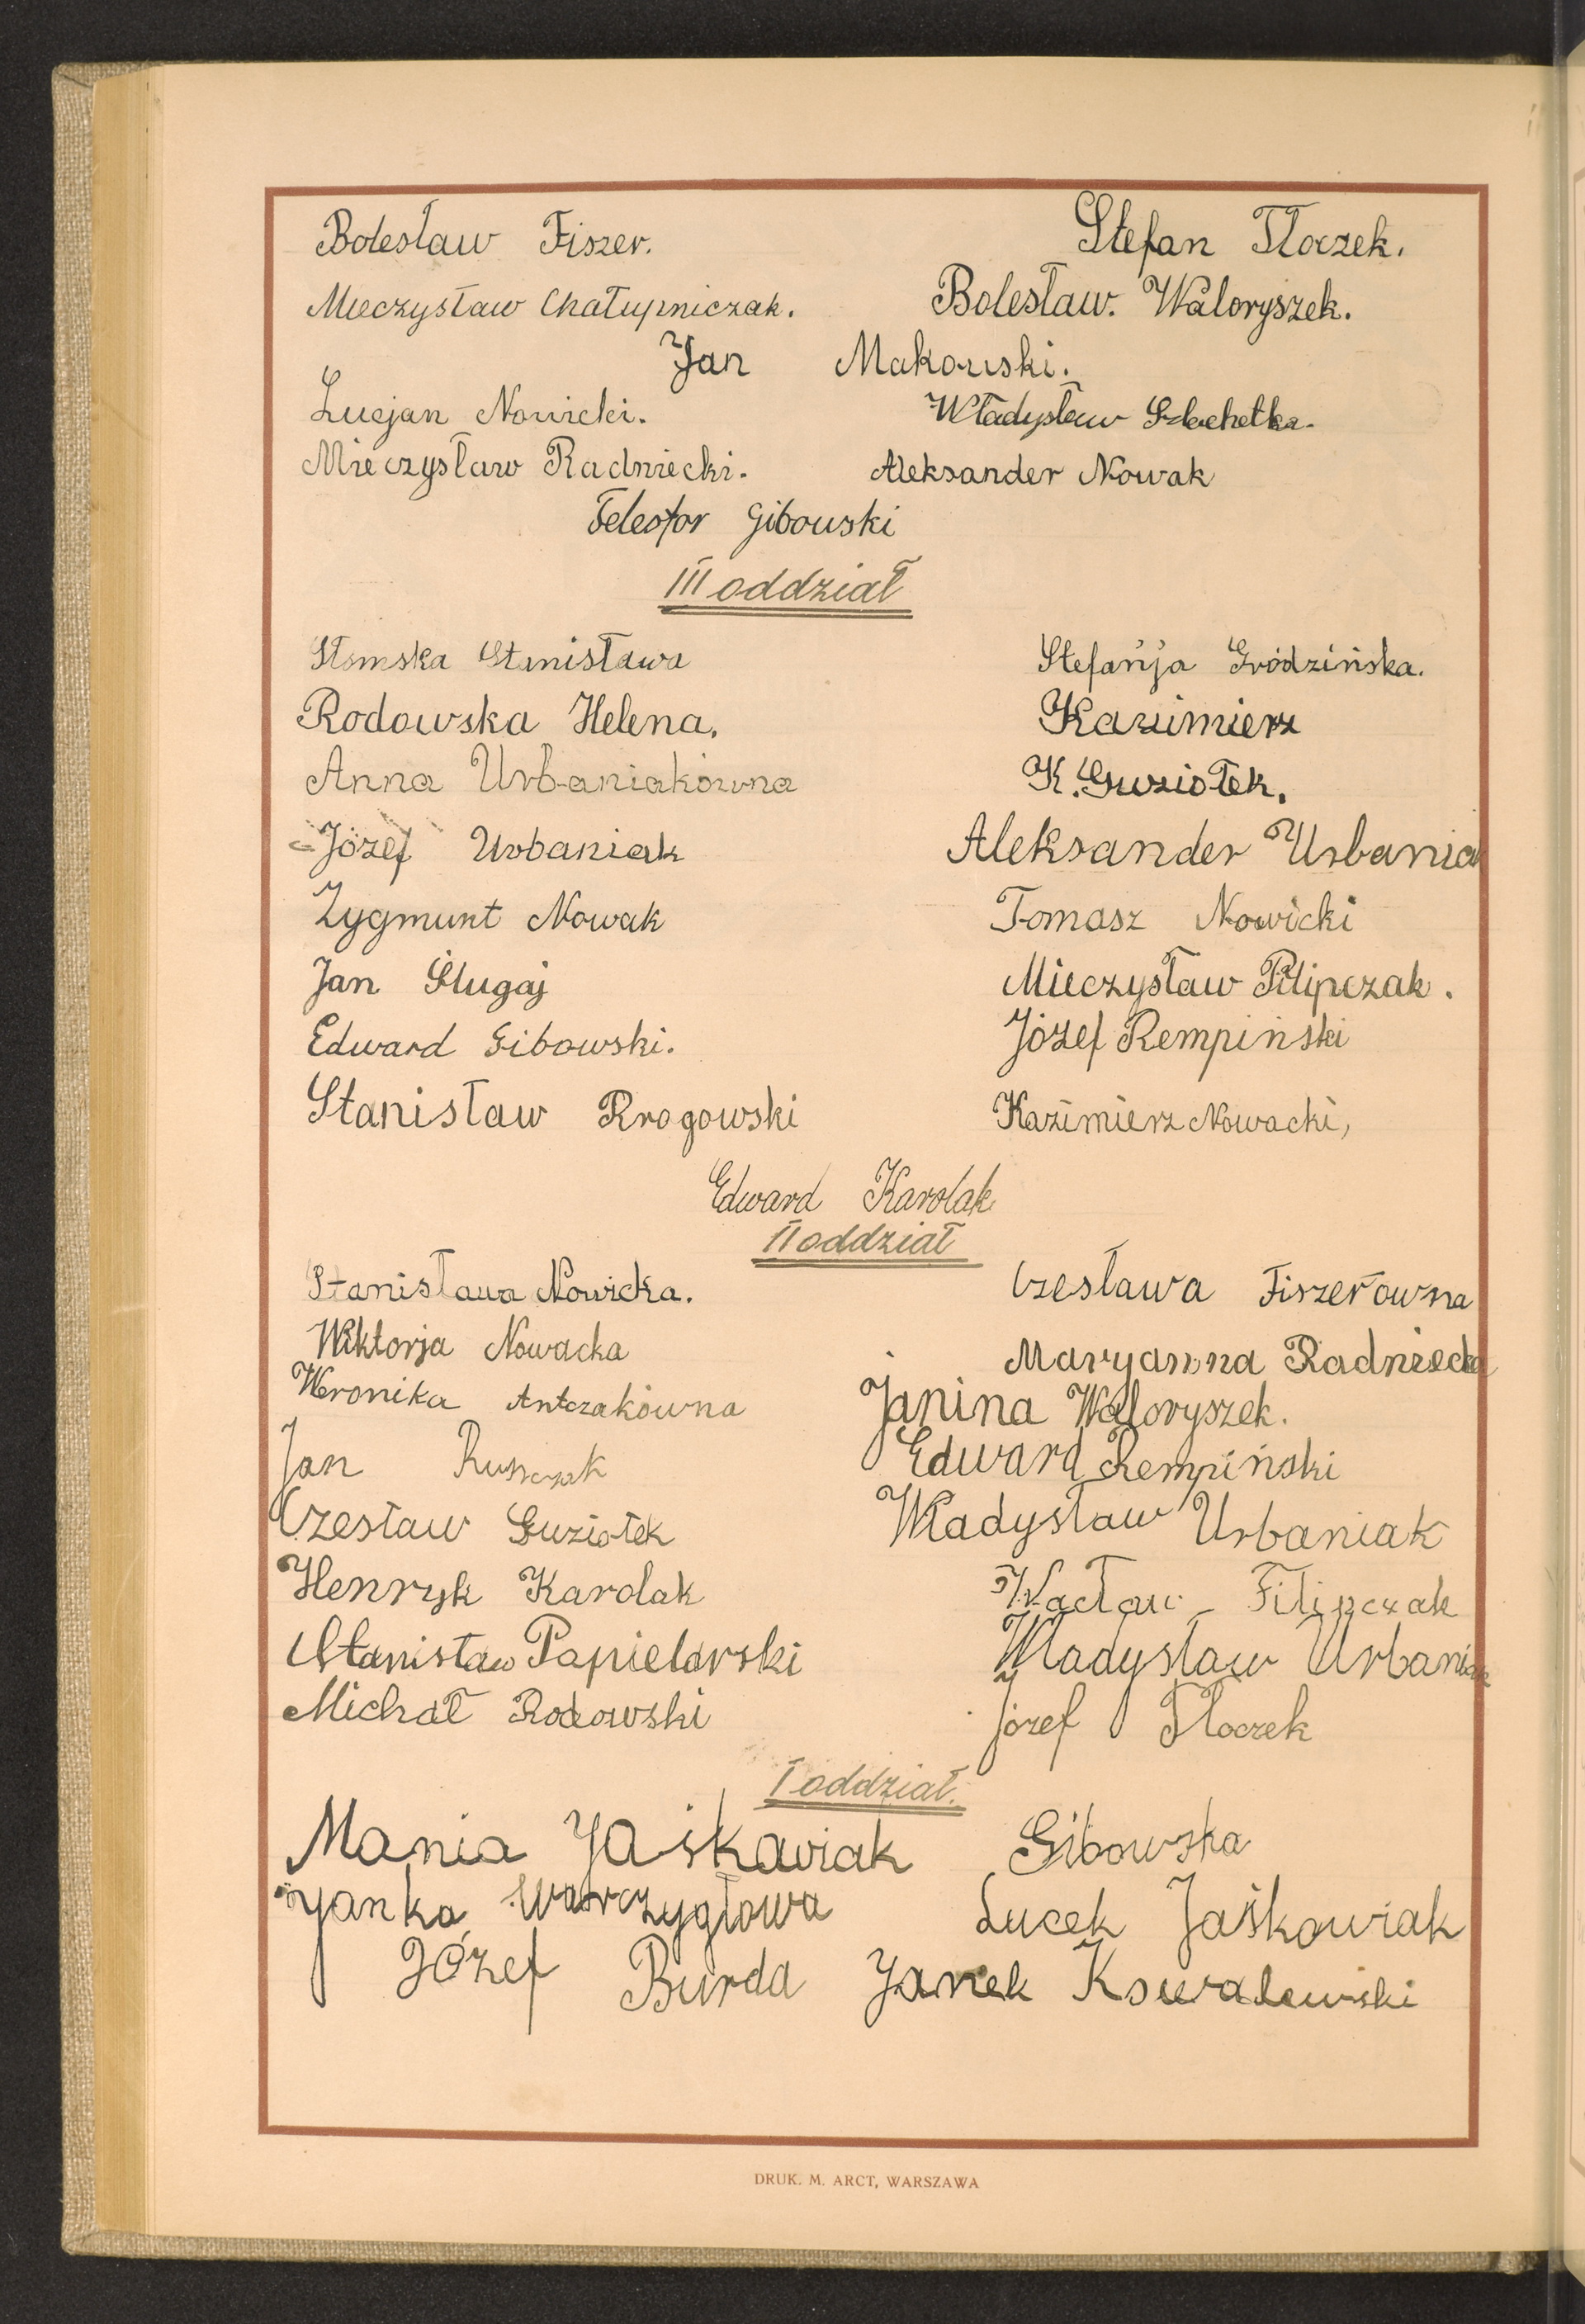 Bolesław Fiszer. Stefan Tłoczek.
Mieczysław Chałupniczak. Bolesław. Waloryszek.
Jan Makowski.
Lucjan Nowicki. Władysław Szlachetka.
Mieczysław Radniecki. Aleksander Nowak
Telesfor Gibowski
III oddział
Stanisława Stefańja Gródzińska.
Rodowska Helena. Kazimierz
Anna Urbaniakówna K. Guziołek.
Józef Urbaniak Aleksander Urbania
Zygmunt Nowak Tomasz Nowicki
Jan Ślugaj Mieczysław Filipczak.
Edward Gibowski. Józef Rempiński
Stanisław Rrogowski Kazimierz Nowacki,
Edward Karolak
II oddział
Stanisława Nowicka. Czesława Fiszerówna
Wiktorja Nowacka Maryanna Radniecka
Weronika Antczakówna Janina Waloryszek.
Jan Edward Rempiński
Czesław Guziołek Władysław Urbaniak
Henryk Karolak Wacław Filipczak
Stanisław Papielarski Władysław Urbaniak
Michał Rodowski Józef Tłoczek
I oddział.
Mania Jaśkawiak Gibowska
Yanka Warczygłowa Lucek Jaśkowiak
Józef Burda Janek Kowalewski
DRUK. M. ARCT, WARSZAWA